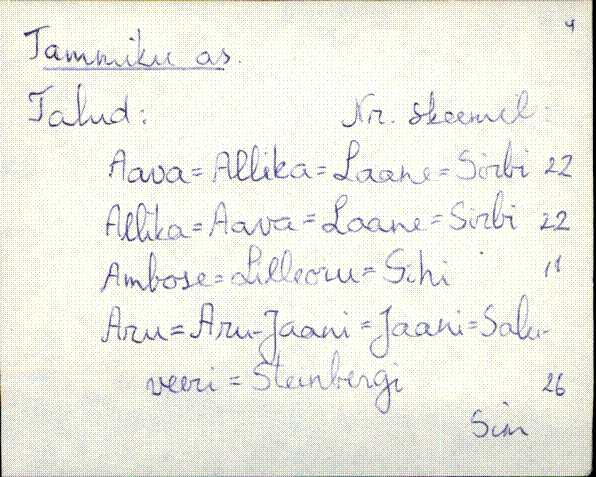 4
Tammiku as.
Talud: Nr. skeemil:
Aava = Allika = Laane = Sirbi 22
Allika = Aava = Laane = Sirbi 22
Ambose = Lilleoru = Sihi 11
Aru = Aru-Jaani = Jaani = Salu-
veeri = Steinbergi 26
Sim